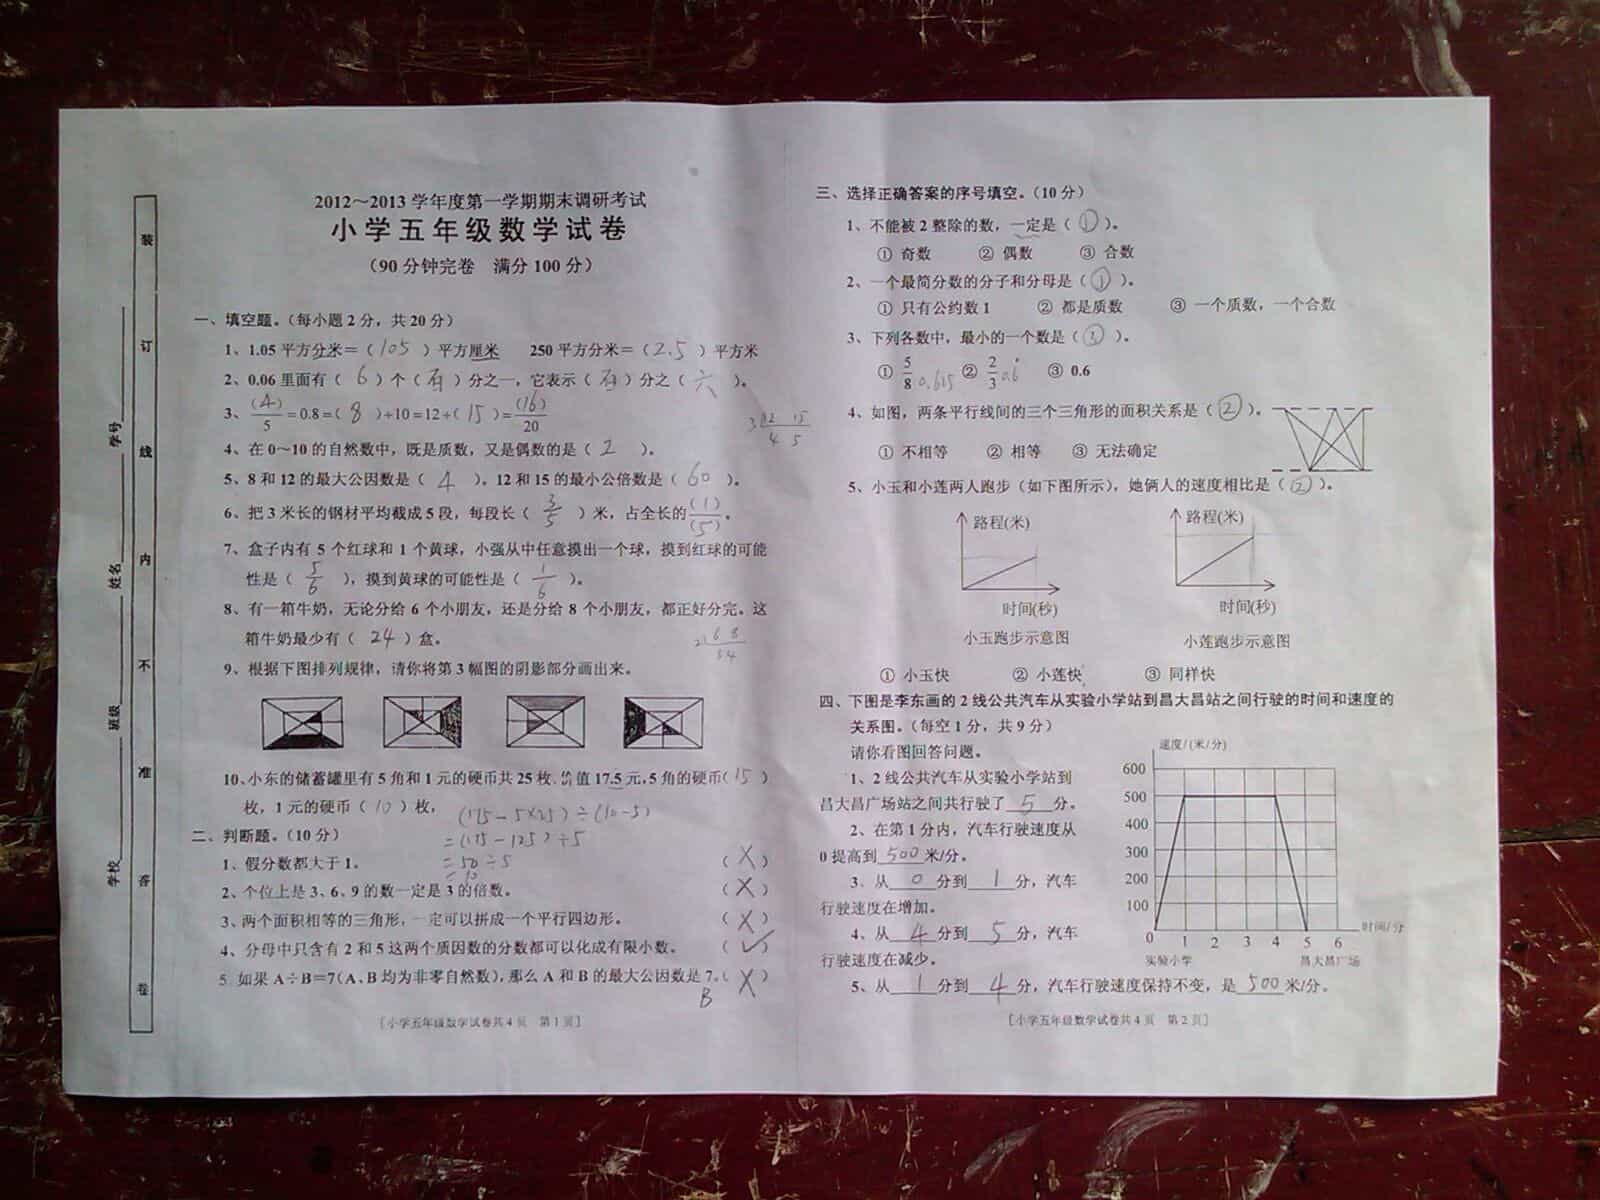 装订线内不准答卷
学校 班级 姓名 学号
2012～2013 学年度第一学期期末调研考试
小学五年级数学试卷
（90 分钟完卷 满分 100 分）
一、填空题。（每小题 2 分，共 20 分）
1、1.05 平方分米＝（ 105 ）平方厘米 250 平方分米＝（ 2.5 ）平方米
2、0.06 里面有（ 6 ）个（百）分之一，它表示（百）分之（ 六 ）。
3、(4)/5 = 0.8 =（ 8 ）÷10 = 12÷（ 15 ）= (16)/20
3 12 15
4 5
4、在 0～10 的自然数中，既是质数，又是偶数的是（ 2 ）。
5、8 和 12 的最大公因数是（ 4 ），12 和 15 的最小公倍数是（ 60 ）。
6、把 3 米长的钢材平均截成 5 段，每段长（ 3/5 ）米，占全长的(1)/(5)。
7、盒子内有 5 个红球和 1 个黄球，小强从中任意摸出一个球，摸到红球的可能
性是（ 5/6 ），摸到黄球的可能性是（ 1/6 ）。
8、有一箱牛奶，无论分给 6 个小朋友，还是分给 8 个小朋友，都正好分完。这
箱牛奶最少有（ 24 ）盒。
2 6 8
3 4
9、根据下图排列规律，请你将第 3 幅图的阴影部分画出来。
10、小东的储蓄罐里有 5 角和 1 元的硬币共 25 枚，价值 17.5 元，5 角的硬币（ 15 ）
枚，1 元的硬币（ 10 ）枚，
(175－5×25)÷(10－5)
＝(175－125)÷5
＝50÷5
＝10
二、判断题。（10 分）
1、假分数都大于 1。 （ X ）
2、个位上是 3、6、9 的数一定是 3 的倍数。 （ X ）
3、两个面积相等的三角形，一定可以拼成一个平行四边形。 （ X ）
4、分母中只含有 2 和 5 这两个质因数的分数都可以化成有限小数。 （ ✓ ）
5 如果 A÷B＝7（A、B 均为非零自然数），那么 A 和 B 的最大公因数是 7。（ X ）
B
［小学五年级数学试卷共 4 页 第 1 页］
三、选择正确答案的序号填空。（10 分）
1、不能被 2 整除的数，一定是（ ① ）。
① 奇数 ② 偶数 ③ 合数
2、一个最简分数的分子和分母是（ ① ）。
① 只有公约数 1 ② 都是质数 ③ 一个质数，一个合数
3、下列各数中，最小的一个数是（ ③ ）。
① 5/8 0.615 ② 2/3 0.6 ③ 0.6
4、如图，两条平行线间的三个三角形的面积关系是（ ② ）。
① 不相等 ② 相等 ③ 无法确定
5、小玉和小莲两人跑步（如下图所示），她俩人的速度相比是（ ② ）。
路程(米) 路程(米)
时间(秒) 时间(秒)
小玉跑步示意图 小莲跑步示意图
① 小玉快 ② 小莲快 ③ 同样快
四、下图是李东画的 2 线公共汽车从实验小学站到昌大昌站之间行驶的时间和速度的
关系图。（每空 1 分，共 9 分）
请你看图回答问题。
1、2 线公共汽车从实验小学站到
昌大昌广场站之间共行驶了 5 分。
2、在第 1 分内，汽车行驶速度从
0 提高到 500 米/分。
3、从 0 分到 1 分，汽车
行驶速度在增加。
4、从 4 分到 5 分，汽车
行驶速度在减少。
5、从 1 分到 4 分，汽车行驶速度保持不变，是 500 米/分。
速度/(米/分)
600
500
400
300
200
100
0 1 2 3 4 5 6 时间/分
实验小学 昌大昌广场
［小学五年级数学试卷共 4 页 第 2 页］